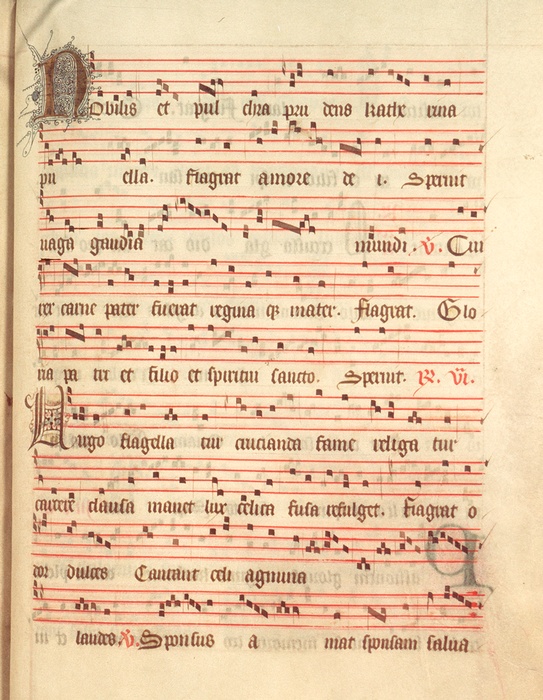 Nobilis et pul chra pru dens Kathe rina
pu ella. Flagrat amore de i. Spernit
uaga gaudia mundi. V. Cui
ter carne pater fuerat regina q mater. Flagrat. Glo
ria pa tri et filio et spiritui sancto. Spernit. R. VI.
Iugo flagella tur crucianda fame religa tur
carcere clausa manet lux celica fusa refulget. Flagrat o
dor dulces Cantant celi agmina
laudes. V. Sponsus a mat sponsam salua